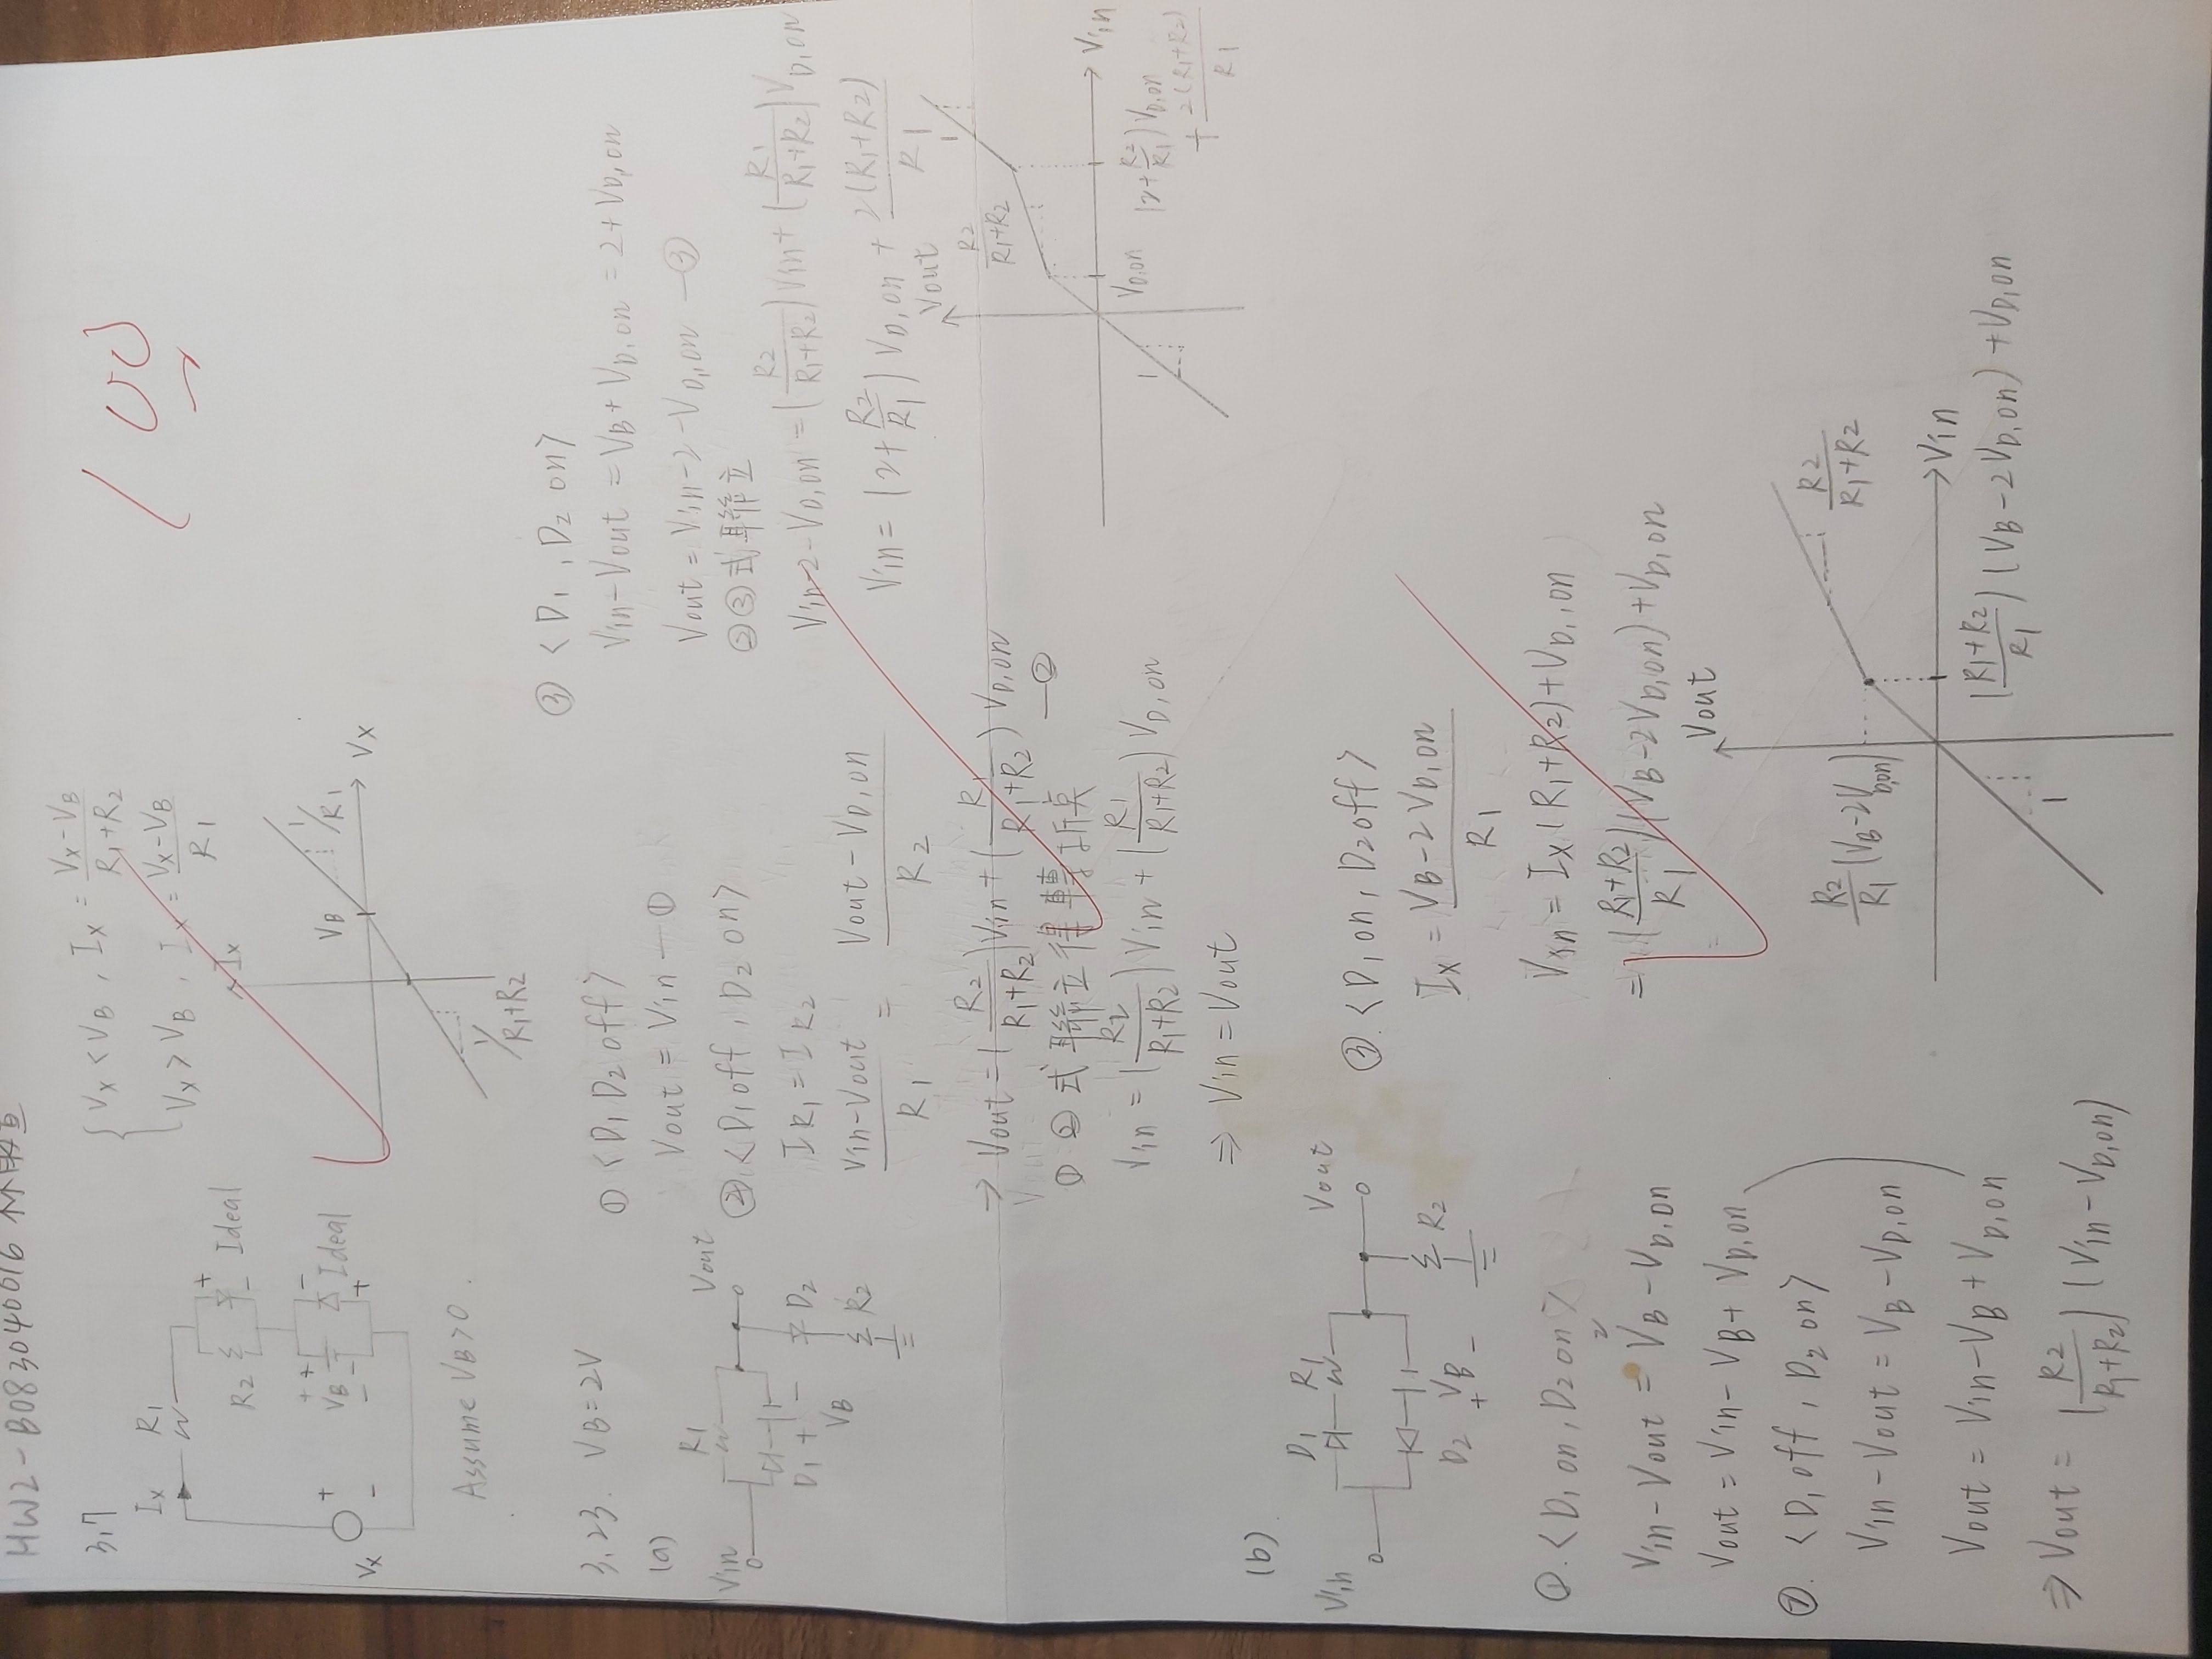 HW2-B083040016 林
3.7
Ix R1
R2 Ideal
VB Ideal
Vx
Assume VB>0.
Vx < VB , Ix = (Vx-VB)/(R1+R2)
Vx > VB , Ix = (Vx-VB)/R1
Ix
VB 1/R1 Vx
1/R1+R2
100
3.23. VB=2V
(a)
Vin R1 Vout
D1 + - D2
VB R2
① <D1 D2 off>
Vout = Vin —①
② <D1 off, D2 on>
IR1 = IR2
(Vin-Vout)/R1 = (Vout-VD,on)/R2
→ Vout = (R2/(R1+R2))Vin + (R1/(R1+R2)) VD,on —②
① ② 式聯立得轉折點
Vin = (R2/(R1+R2)) Vin + (R1/(R1+R2)) VD,on
⇒ Vin = Vout
③ <D1, D2 on>
Vin-Vout = VB + VD,on = 2 + VD,on
Vout = Vin-2-VD,on —③
②③式聯立
Vin-2-VD,on = (R2/(R1+R2))Vin + (R1/(R1+R2))VD,on
Vin = (2+R2/R1) VD,on + 2(R1+R2)/R1
Vout
R2/(R1+R2) 1
Vin
1 VD,on (2+R2/R1)VD,on + 2(R1+R2)/R1
(b)
Vin D1 R1 Vout
D2 VB R2
+ -
①. <D1 on, D2 on>
2
Vin-Vout = VB-VD,on
Vout = Vin-VB+VD,on
②. <D1 off, D2 on>
Vin-Vout = VB-VD,on
Vout = Vin-VB+VD,on
⇒ Vout = (R2/(R1+R2)) (Vin-VD,on)
③. <D1 on, D2 off>
Ix = (VB-2VD,on)/R1
Vin = Ix(R1+R2)+VD,on
= ((R1+R2)/R1)(VB-2VD,on)+VD,on
Vout
R2/R1 (VB-2VD,on) R2/(R1+R2)
Vin
((R1+R2)/R1) (VB-2VD,on)+VD,on
1